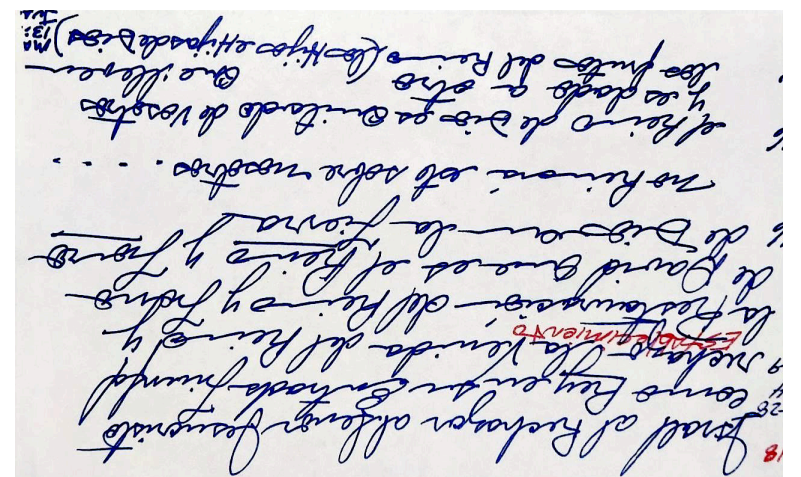 Israel al Rechazar al Señor Jesucristo
como Rey, en su Entrada Triunfal
rechazo la Venida del Reino y
ESTABLECIMIENTO
la Restauración del Reino y Trono
de David que es el Reino y Trono
de Dios en la Tierra
no Reinará este sobre nosotros . . . .
el Reino de Dios es Quitado de Vosotros
y es dado a otro que lleven
los frutos del Reino (los Hijos e Hijas de Dios)